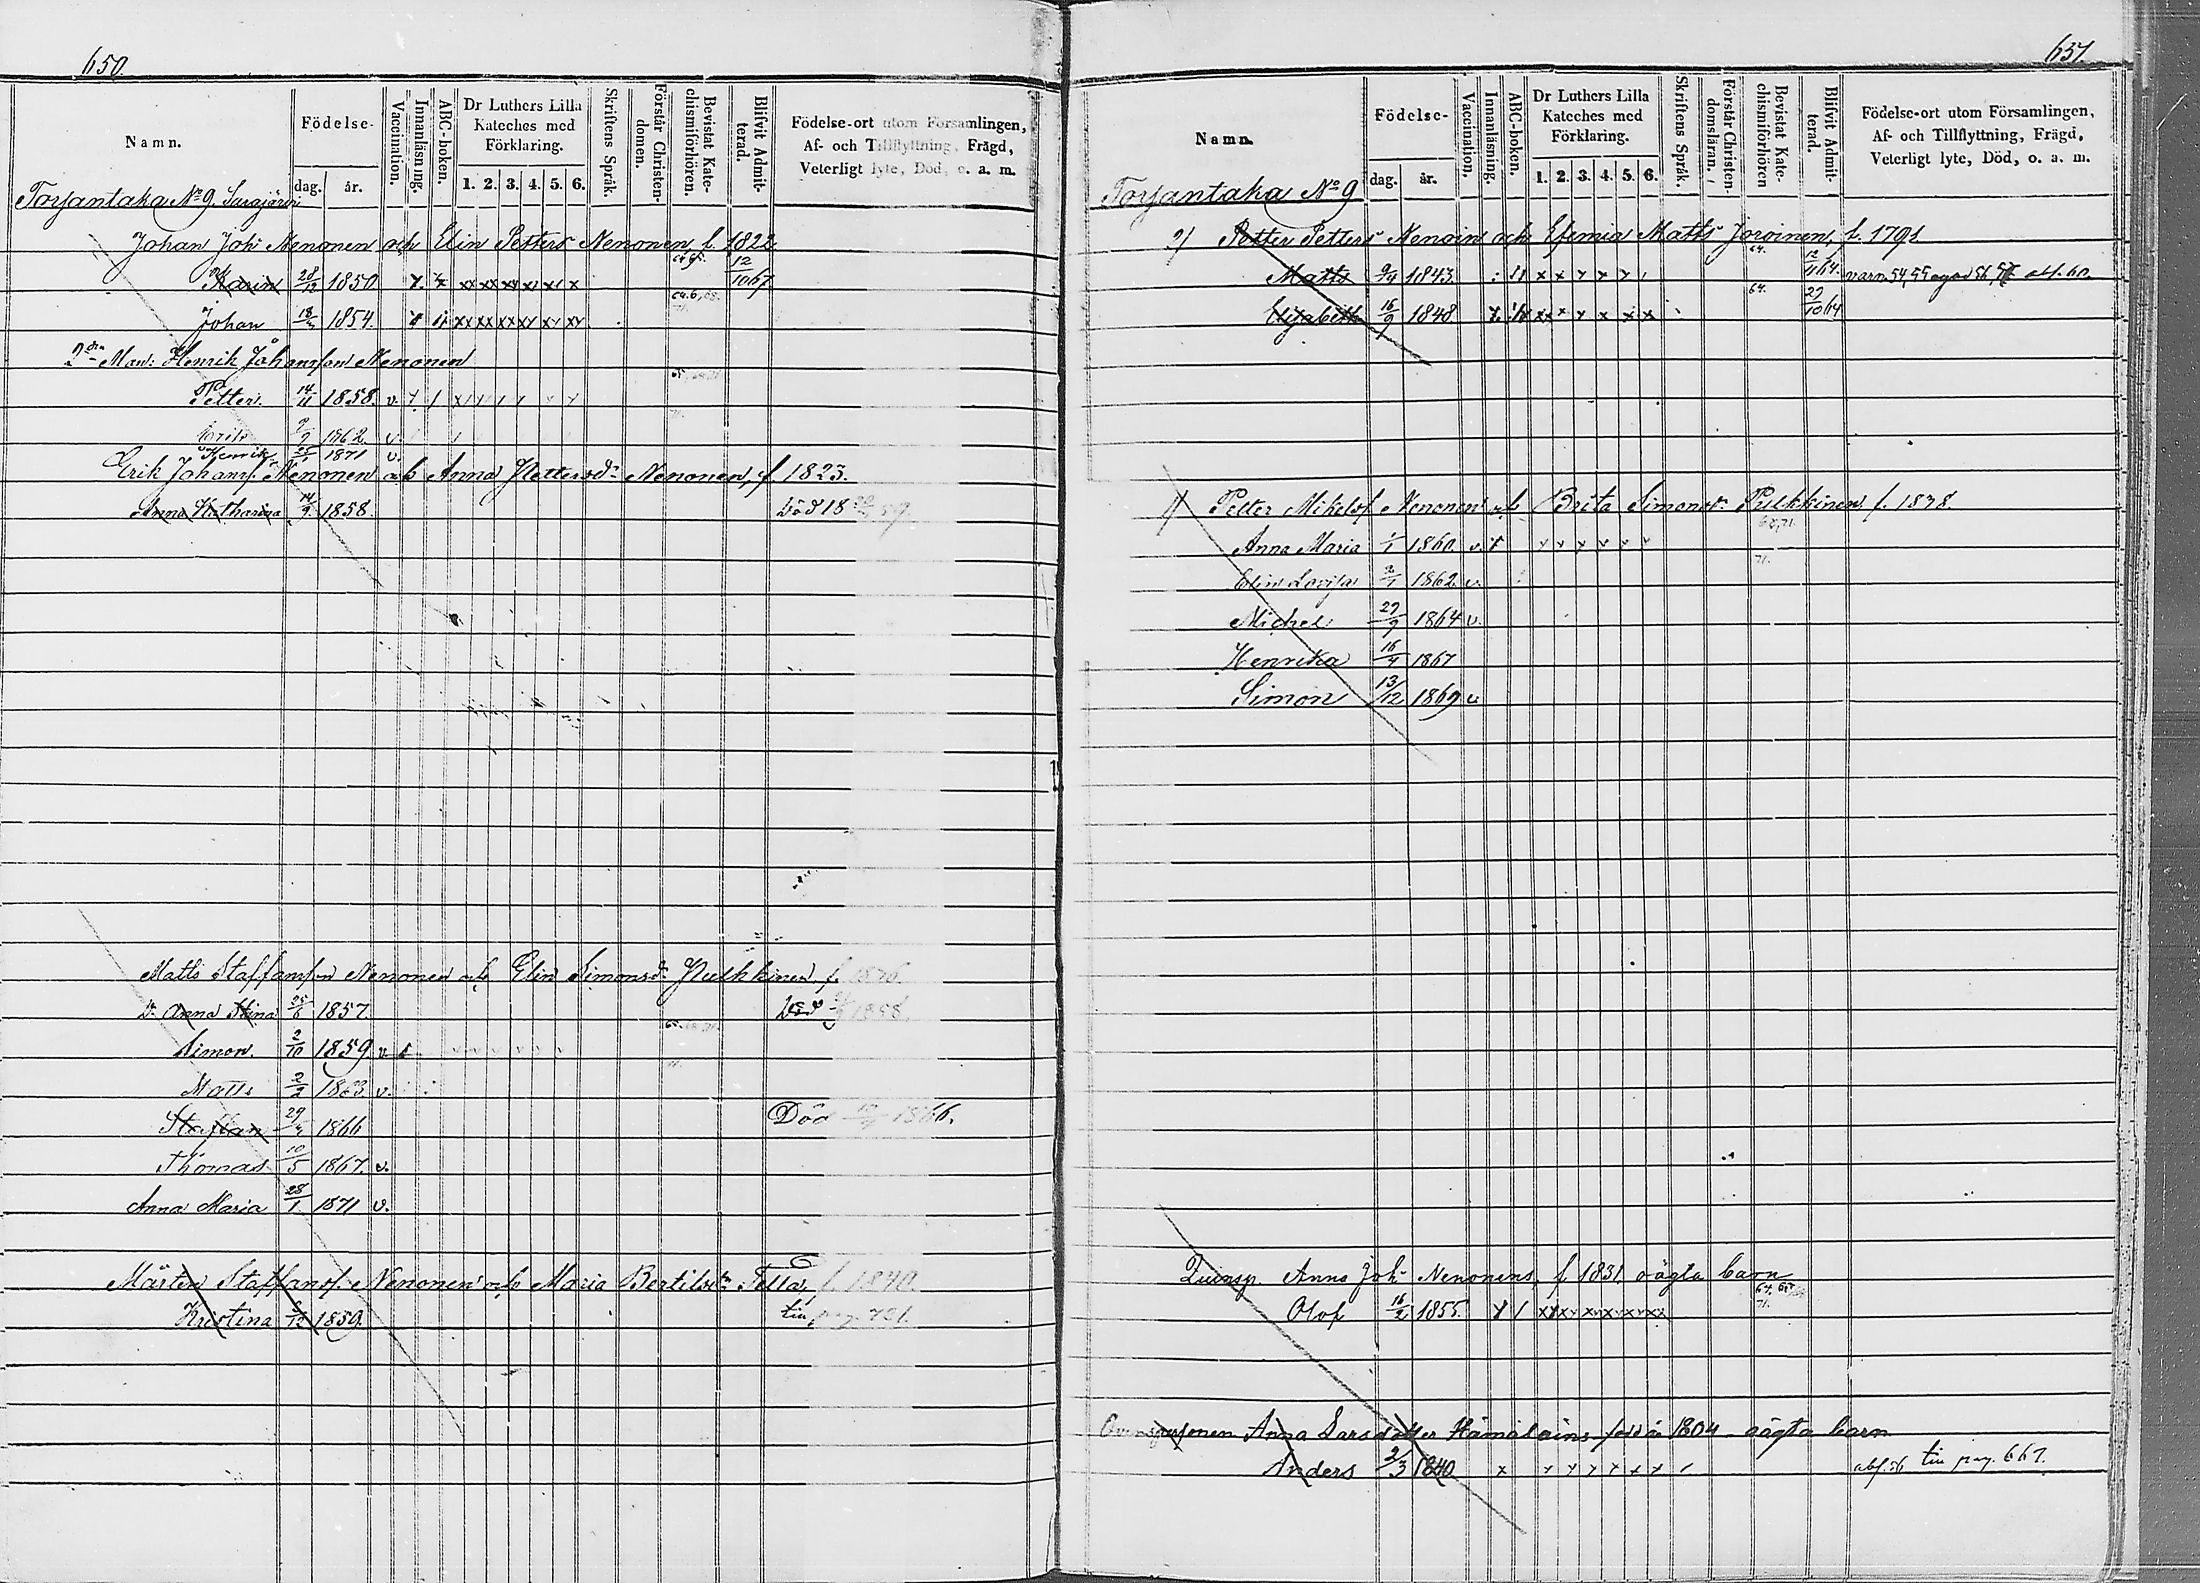 650.
Namn.
Födelse-
dag.
år.
Vaccination.
Innanläsning.
ABC-boken.
Dr Luthers Lilla Kateches med Förklaring.
1. 2. 3. 4. 5. 6.
Skriftens Språk.
Förstår Christendomen.
Bevistat Katechismiförhören.
Blifvit Admitterad.
Födelse-ort utom Församlingen, Af- och Tillflyttning, Frägd, Veterligt lyte, Död, o. a. m.
Torjantaka No 9.
Johan Johs Nenonen och Elin Petters Nenonen, f. 1822
Karin 28/12 1850. 12/10 67
Johan 1854.
2dra Man: Henrik Johansson Nenonen
Petter. 14/11 1858. v.
Erik 1862. v.
Henrik 1871 v.
Erik Johans. Nenonen och Anna Pettersdr Nenonen, f. 1823.
Anna Katharina 14/9 1858. Död 18
Matts Staffansson Nenonen och Elin Simonsdr Pulkkinen, f.
Dr Anna Stina 25/6 1857. Död 1858.
Simon. 2/10 1859 v.
Matts 2/2 1863 v.
Staffan 1866 Död 1866.
Thomas 10/5 1867. v.
Anna Maria 28/1 1871 v.
Mårten Staffansf. Nenonen och Maria Bertilsdr Tella, f. 1840.
Kristina 1859. till pag. 721.
651.
Namn.
Födelse-
dag.
år.
Vaccination.
Innanläsning.
ABC-boken.
Dr Luthers Lilla Kateches med Förklaring.
1. 2. 3. 4. 5. 6.
Skriftens Språk.
Förstår Christendomsläran.
Bevistat Katechismiförhören
Blifvit Admitterad.
Födelse-ort utom Församlingen, Af- och Tillflyttning, Frägd, Veterligt lyte, Död, o. a. m.
Torjantaka No 9
2/ Petter Petters Nenoin och Efemia Matts Joroinen, f. 1791
Matts 1843. 64. 12/11 64.
Elisabeth 16/9 1848 64. 29/10 64
1/ Petter Mikelsf. Nenonen och Brita Simonsdr Pulkkinen f. 1838.
Anna Maria 1/1 1860. v.
Elin Lovisa 1862. v.
Michel 29/9 1864 v.
Henrika 16/4 1867
Simon 13/12 1869 v
Quinsp. Anna Johs Nenonens, f. 1831 oägta barn
Olof 16/2 1855.
Qvinspersonen Anna Larsdotter Hämäläins född år 1804 oägta barn
Anders 2/3 1840 till pag. 667.